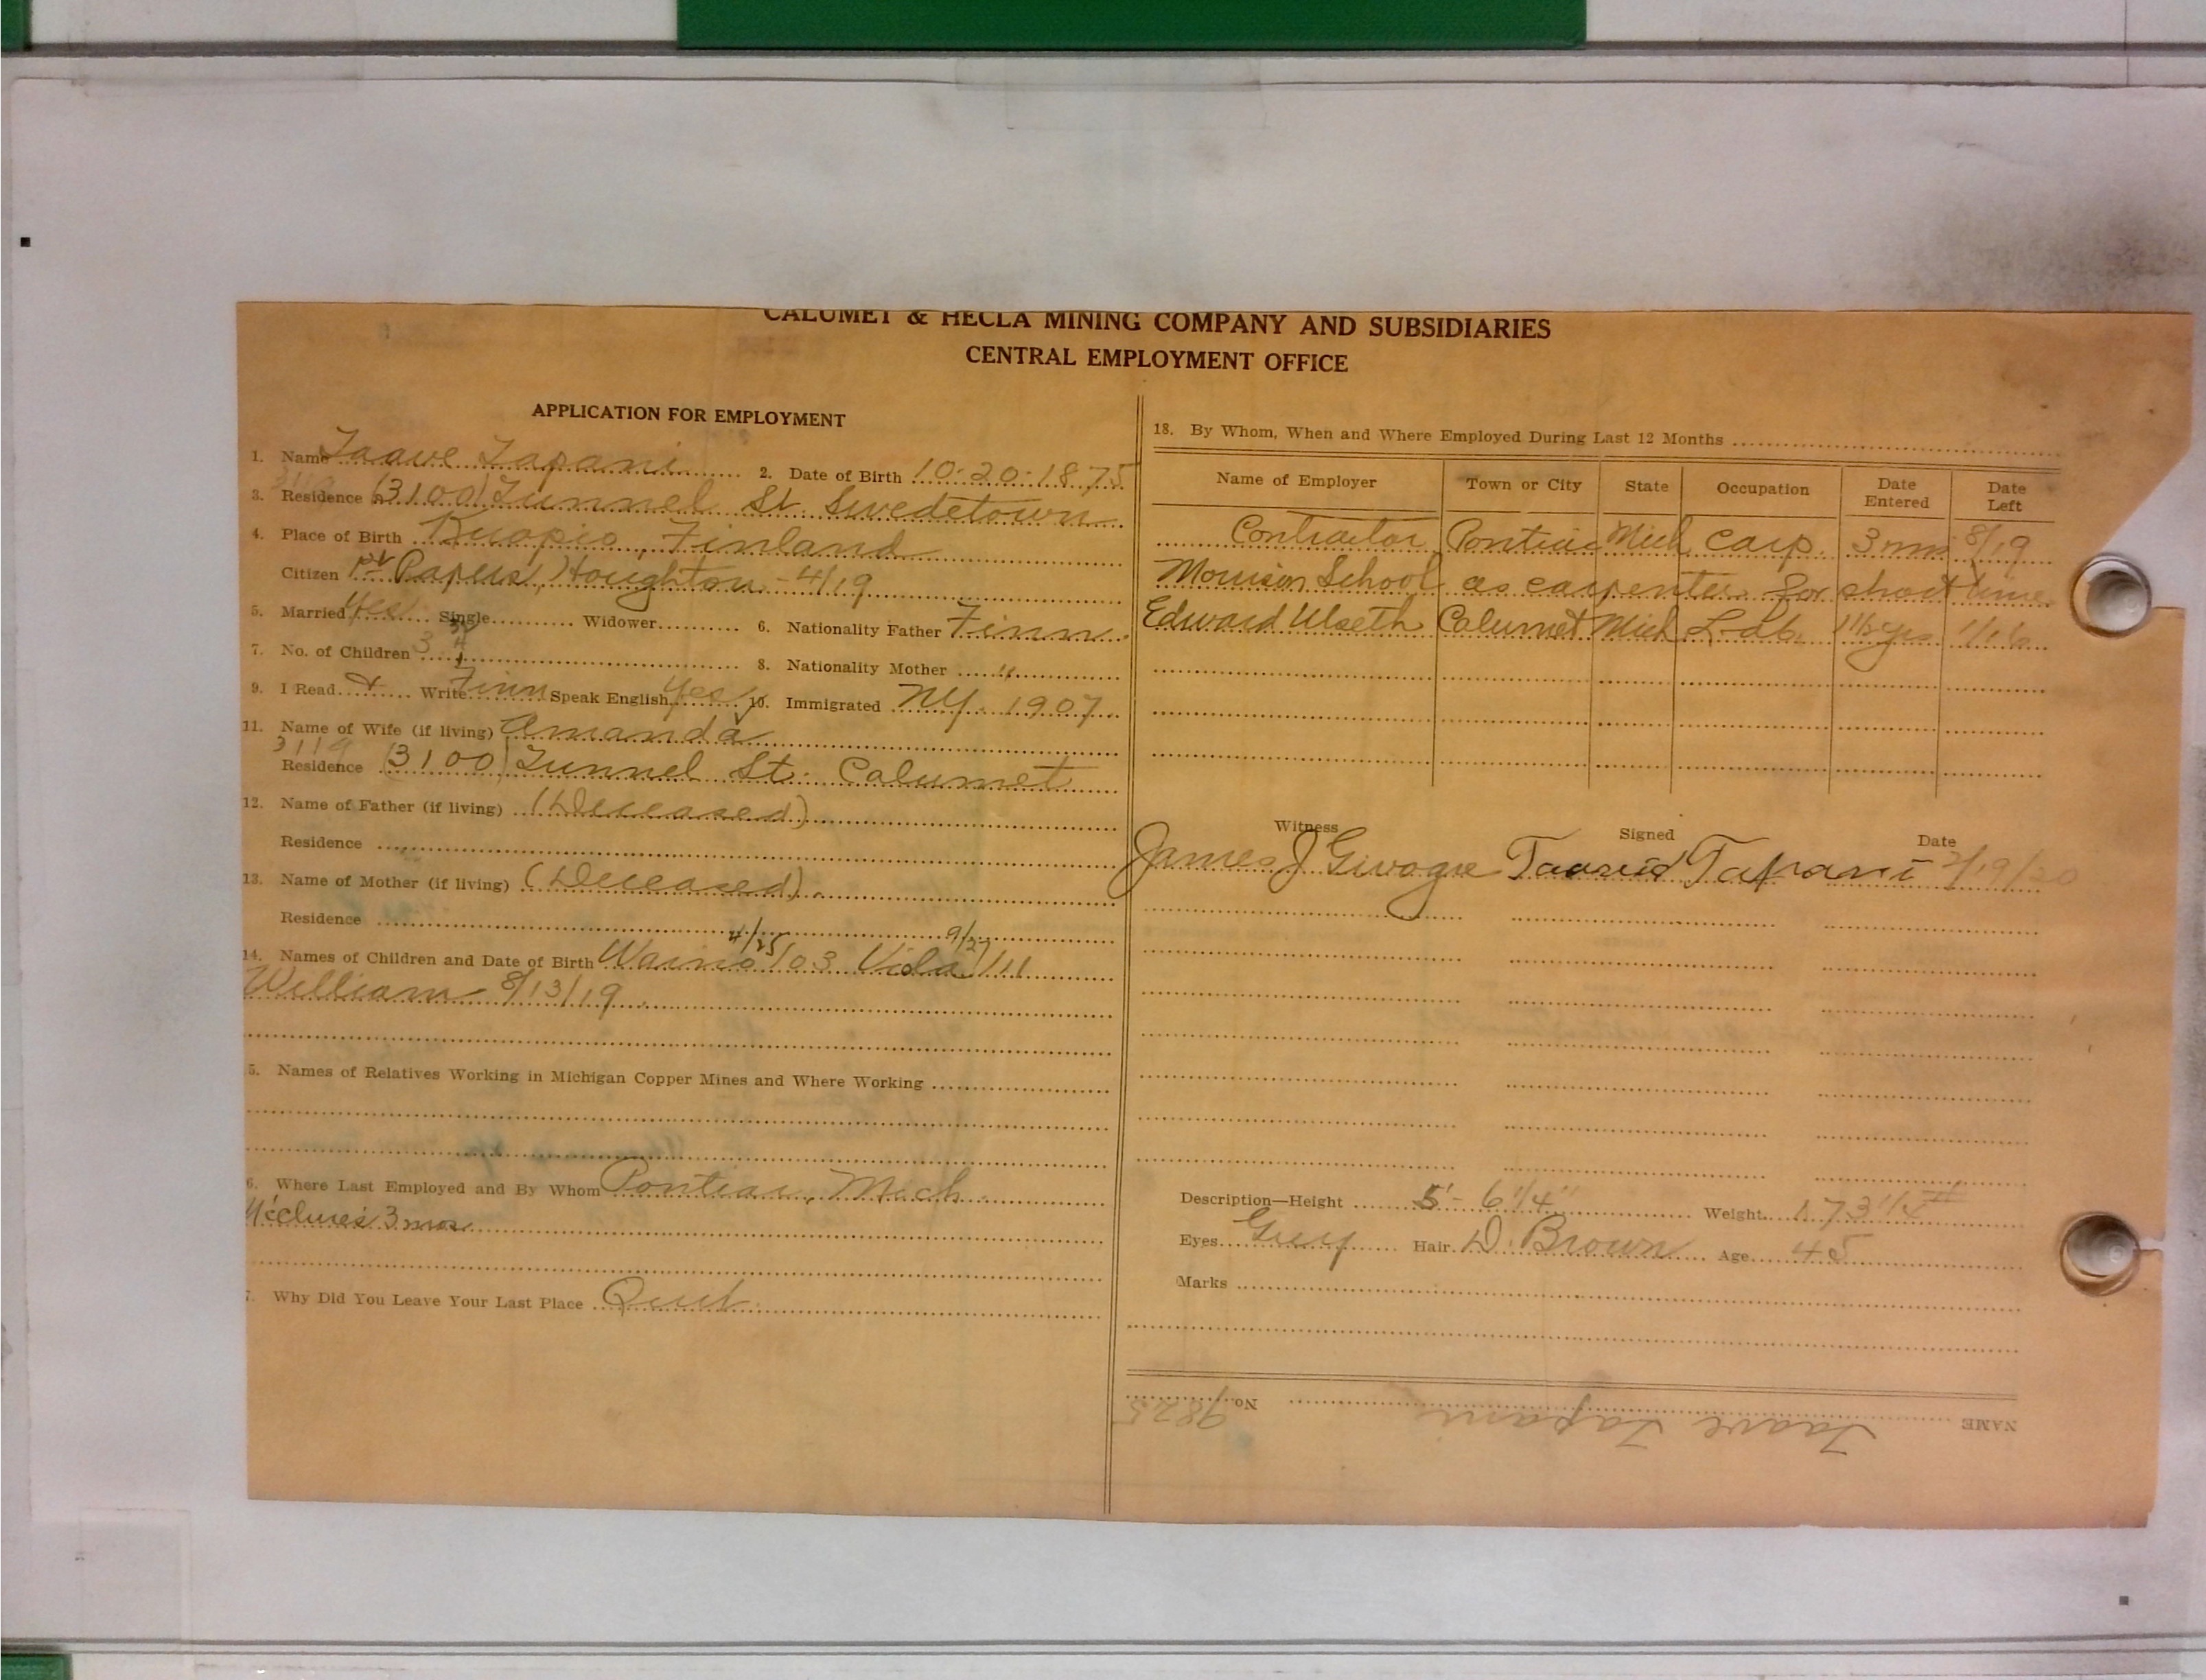 CALUMET & HECLA MINING COMPANY AND SUBSIDIARIES
CENTRAL EMPLOYMENT OFFICE
APPLICATION FOR EMPLOYMENT
1. Name Taave Tapani 2. Date of Birth 10-20-1875
3. Residence (3100) Tunnel St. Swedetown
4. Place of Birth Kuopio, Finland
Citizen 1st Papers, Houghton - 4/19
5. Married Yes Single Widower 6. Nationality Father Finn
7. No. of Children 3 8. Nationality Mother "
9. I Read & Write Finn Speak English Yes 10. Immigrated NY. 1907
11. Name of Wife (if living) Amanda
3118
Residence (3100) Tunnel St. Calumet
12. Name of Father (if living) (Deceased)
Residence
13. Name of Mother (if living) (Deceased)
Residence
14. Names of Children and Date of Birth Waino 4/25/03 Vida 9/27/11
William 8/13/19
5. Names of Relatives Working in Michigan Copper Mines and Where Working
6. Where Last Employed and By Whom Pontiac, Mich.
3 mos
7. Why Did You Leave Your Last Place Quit
18. By Whom, When and Where Employed During Last 12 Months
Name of Employer Town or City State Occupation Date Entered Date Left
Contractor Pontiac Mich Carp. 3 mos 8/19
Morrison School as carpenter for short time
Edward Ulseth Calumet Mich Lab. 1 1/2 yrs 1/16
Witness Signed Date
James J Tapani 2/19/20
Description—Height 5'- 6 1/4" Weight 173 1/2 #
Eyes Grey Hair D. Brown Age 45
Marks
NAME Taave Tapani No. 9825